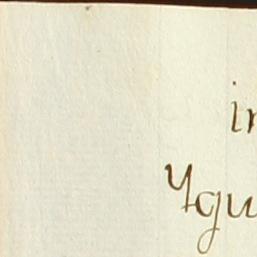 in
Ygu